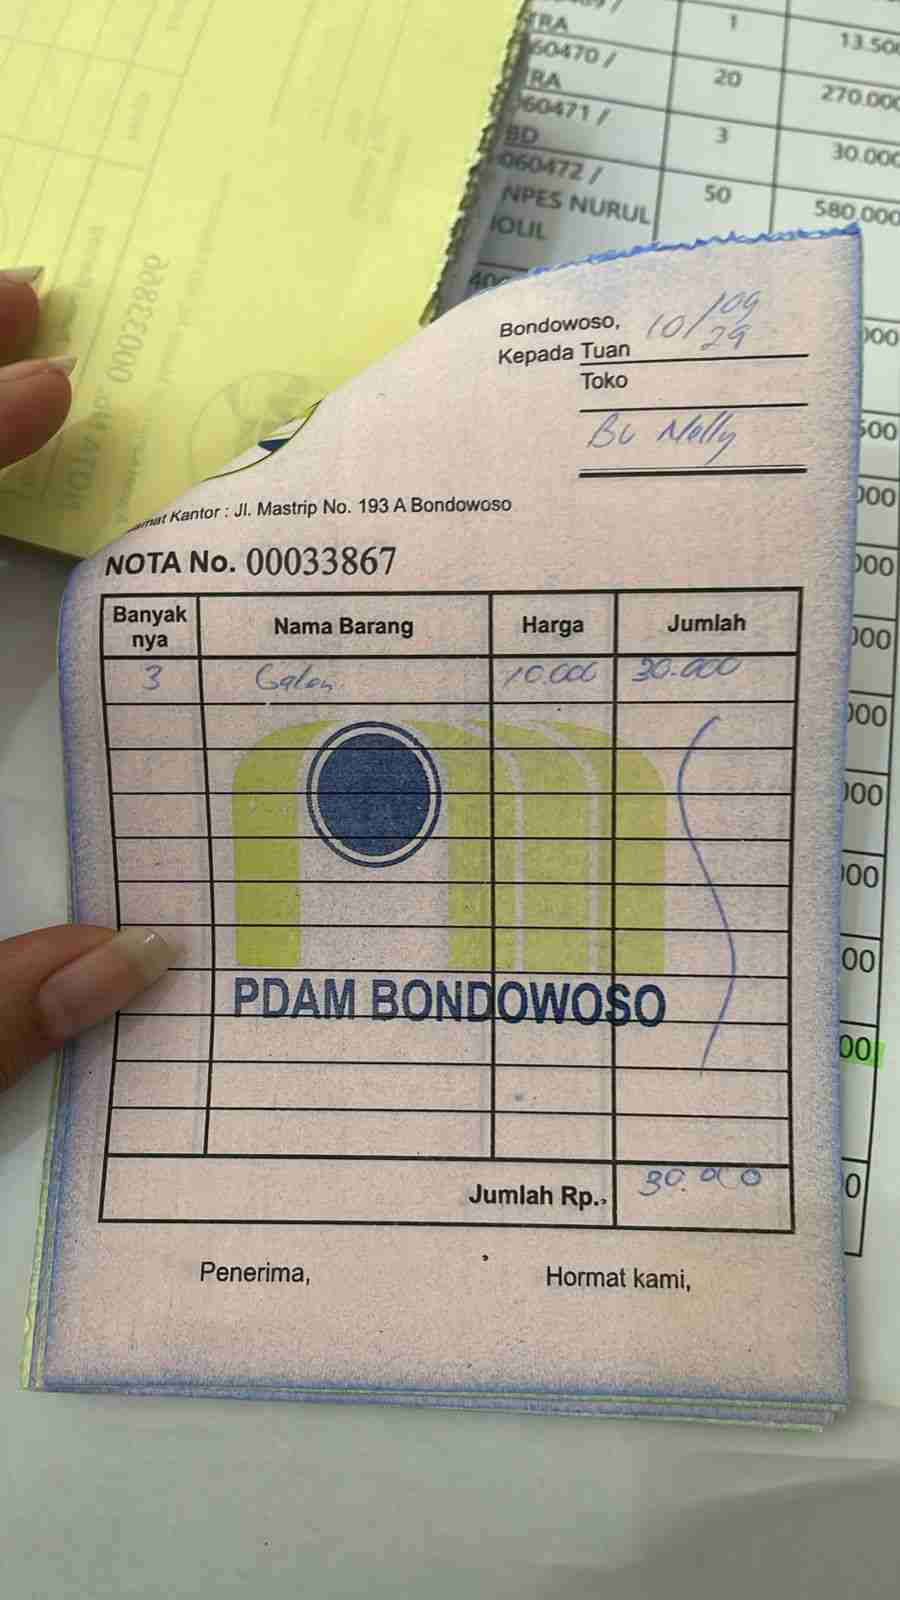 TRA
1
13.50
60470 /
RA
20
270.000
060471 /
BD
3
30.000
060472 /
NPES NURUL
OLIL
50
580.000
NOTA No. 00033866
Bondowoso, 10/09
29
Kepada Tuan
Toko
Bu Nelly
mat Kantor : Jl. Mastrip No. 193 A Bondowoso
NOTA No. 00033867
Banyak nya Nama Barang Harga Jumlah
3 Galon 10.000 30.000
PDAM BONDOWOSO
Jumlah Rp.. 30.000
Penerima, Hormat kami,